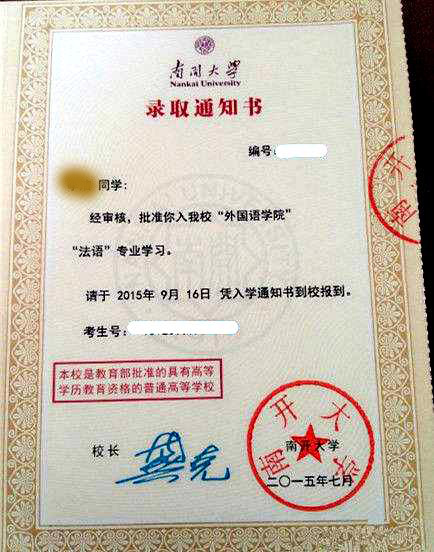 南开大学
Nankai University
录取通知书
编号:
同学:
经审核，批准你入我校“外国语学院”
“法语”专业学习。
请于 2015年 9月 16日 凭入学通知书到校报到。
考生号:
本校是教育部批准的具有高等
学历教育资格的普通高等学校
校长
龚克
南开大学
二〇一五年七月
南开大学
南开